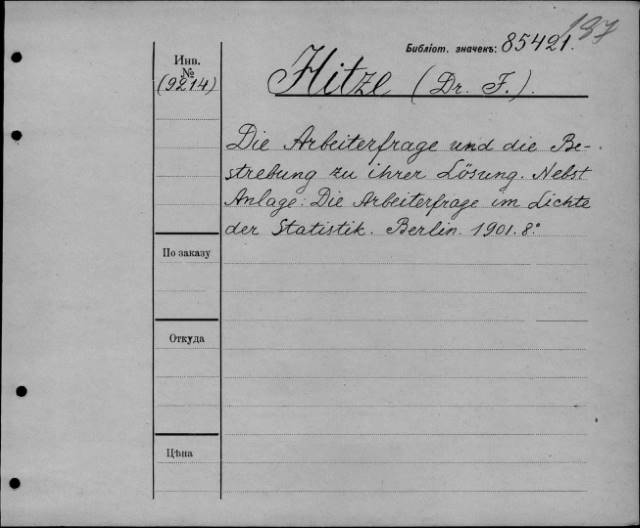 187
Библіот. значекъ: 85421.
Инв.
№
(9214)
Hitze (Dr. F.).
Die Arbeiterfrage und die Be-
strebung zu ihrer Lösung. Nebst
Anlage: Die Arbeiterfrage im Lichte
der Statistik. Berlin. 1901. 8º
По заказу
Откуда
Цѣна